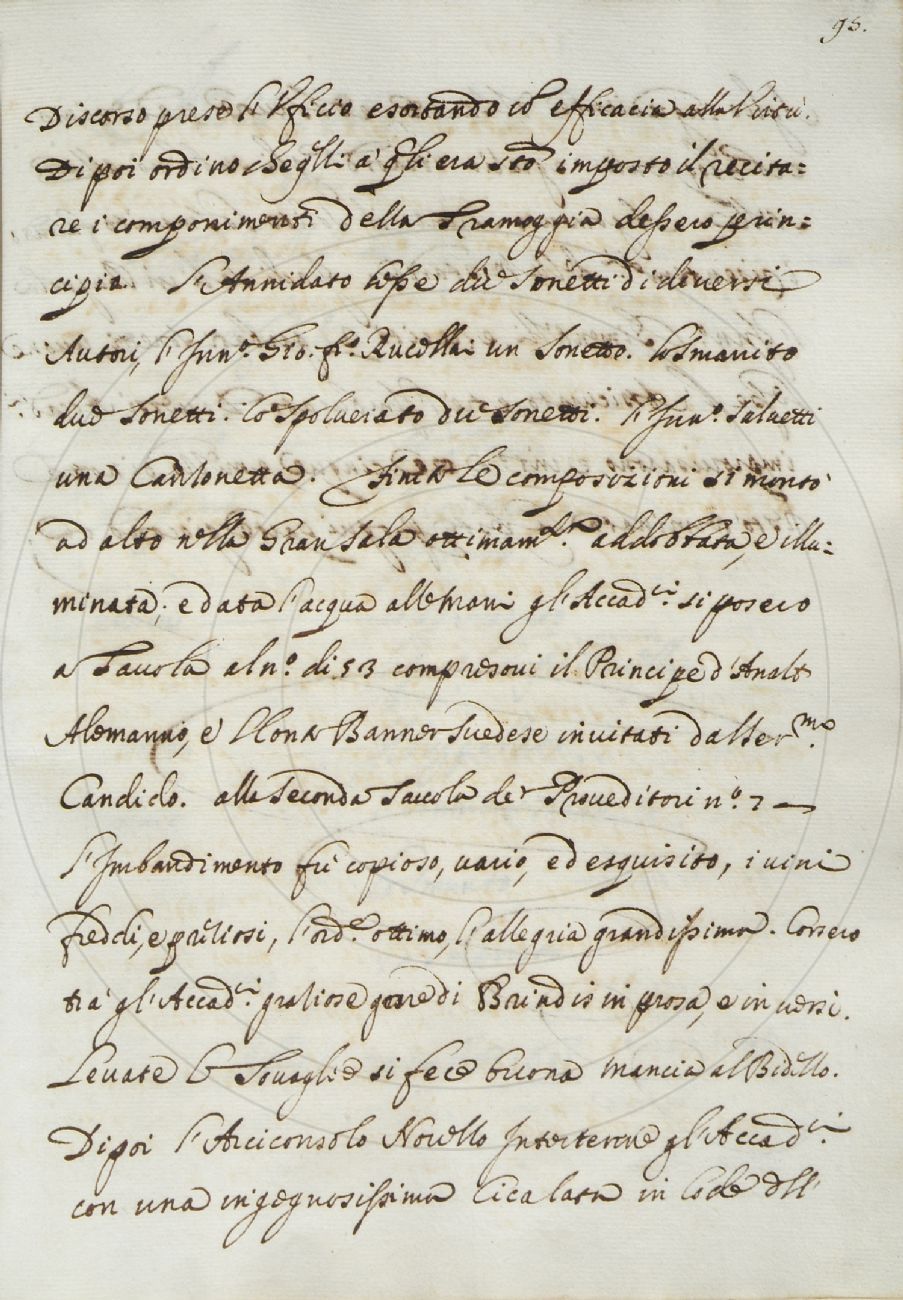 95.
Discorso prese l'Uficio esortando cō efficacia alla Virtù.
Dipoi ordinò che qlli a' q̄li era stō imposto il recita=
re i componimenti della Tramoggia dessero prin=
cipio. L'Annidato lesse due Sonetti di diversi
Autori, l'Inn.º Gio. fr.º Rucellai un Sonetto. Lo Smarrito
due Sonetti. Lo Spolverato due Sonetti. l'Inn.º Salvetti
una Canzonetta. Finite le composizioni si montò
ad alto nella Gran Sala ottimam.te addobbata, e illu=
minata; e data l'acqua alle Mani gl'Accad.ci si posero
a Tavola al nº. di 53 compresovi il Principe d'Analt
Alemanno, e' Banner Suedese invitati dal Ser.mo
Candido. alla Seconda Tavola de' Proveditori nº. 7 —
l'Imbandimento fu copioso, vario, ed esquisito, i vini
freddi, e preziosi, l'ord.e ottimo, l'allegria grandissima. Corsero
tra gl'Accad.ci graziose gare di Brindis in prosa, e in versi.
Levate le Tovaglie si fece buona Mancia al Bidello.
Dipoi l'Arciconsolo Novello Intertenne gl'Accad.ci
con una ingegnosissima Cicalata in lode dell'